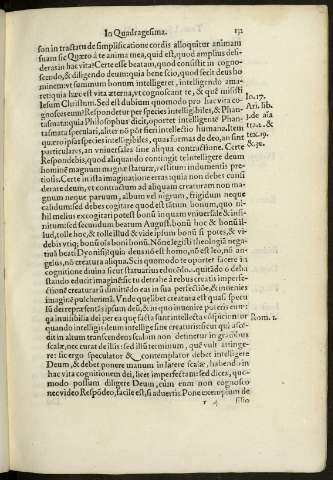 In Quadragesima. 131
son in tractatu de simplificatione cordis alloquitur animam
suam sic Quæro à te anima mea, quid est, quod amplius desi-
deras in hac vita? Certe esse beatam, quod consistit in cogno-
scendo, & diligendo deum: quia bene scio, quod fecit deus ho
minem: vt summum bonum intelligeret, intelligendo ama-
ret: quia hæc est vita æterna, vt cognoscant te, & quē misisti
Iesum Christum. Sed est dubium quomodo pro hac vita co-
gnoscit eum? Respondetur per species intelligibiles, & Phan-
tasmata: quia Philosophus dicit, oportet intelligentē Phan-
tasmata speculari, aliter nō pōt fieri intellectio humana. Item
quero ipsas species intelligibiles, quas formas de deo, an sint
particulares, an vniuersales sine aliqua contractione. Certe
Respondebis, quod aliquando contingit te intelligere deum
hominem magnum magnæ staturæ, vestitum indumentis pre-
tiosis. Certe in ista imaginatione erras: quia non debes consi
derare deum, vt contractum ad aliquam creaturam non ma-
gnum neque paruum, album vel nigrum, frigidum neque
calidum: sed debes cogitare quod est summum bonum, quo ni-
hil melius excogitari potest bonū inquam vniuersale & infi-
nitum: sed secundum beatum August. bonū hoc & bonū il-
lud, tolle hoc, & tolle illud & vide ipsum bonū si potes, & vi-
debis vtiq; bonū oīs boni bonū. Nōne legisti theologiā nega-
tiuā beati Dyonisij: quia deus nō est homo, nō est leo, nō an-
gelus, nō creatura aliqua. Scis quomodo te oportet facere in
cognitione diuina sicut statuarius educēdo
stando educit imaginē: sic tu detrahe à rebus creatis imper-
fectionē creaturarū dimittēdo eas in sua perfectiōe, & inuenies
imaginē pulcherimā. Vnde quælibet creatura est quasi specu
lū dei repræsentās ipsum deū, & in quo inuenire poteris eum:
qa inuisibilia dei per ea quę facta sunt intellecta cōspiciuntur
quando intelligis deum intellige sine creaturis: sicut qui ascē-
dit in altum transcendens scalam non detinetur in gradibus
scalæ, nec curat de illis: sed illum terminum, quē vult attinge-
re: sic ergo speculator & contemplator debet intelligere
Deum, & debet ponere manum in latere scalæ, habendo in
hac vita cognitionem dei, licet imperfectam: sed dices, quo-
modo possum diligere Deum, cùm eum non cognosco
nec video Respōdeo, facile est, si aduertis. Pone exemplum de
r filio
Io. 17.
Ari. lib.
3. de aīa
tex.
tex. 19.
& 30.
Rom. 1.